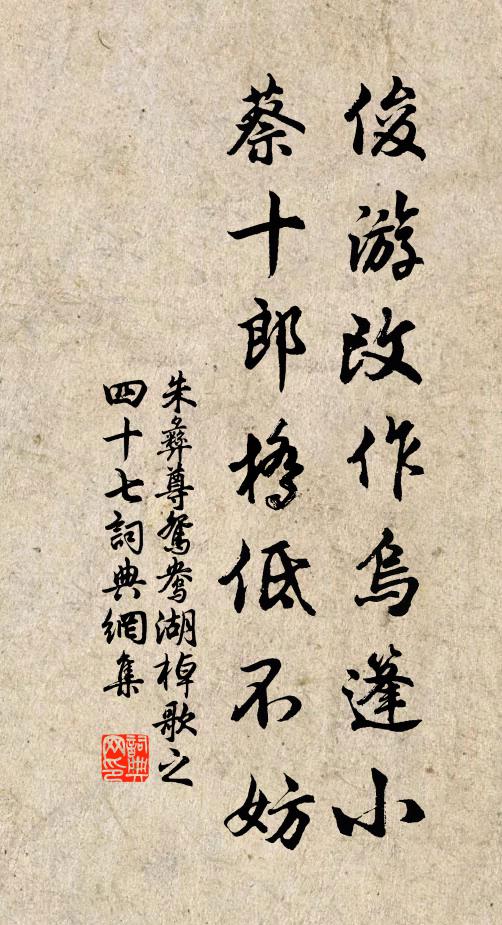 俊游改作烏篷小
蔡十郎橋低不妨
朱彝尊鴛鴦湖棹歌之
四十七詞典網集
詞典
网印